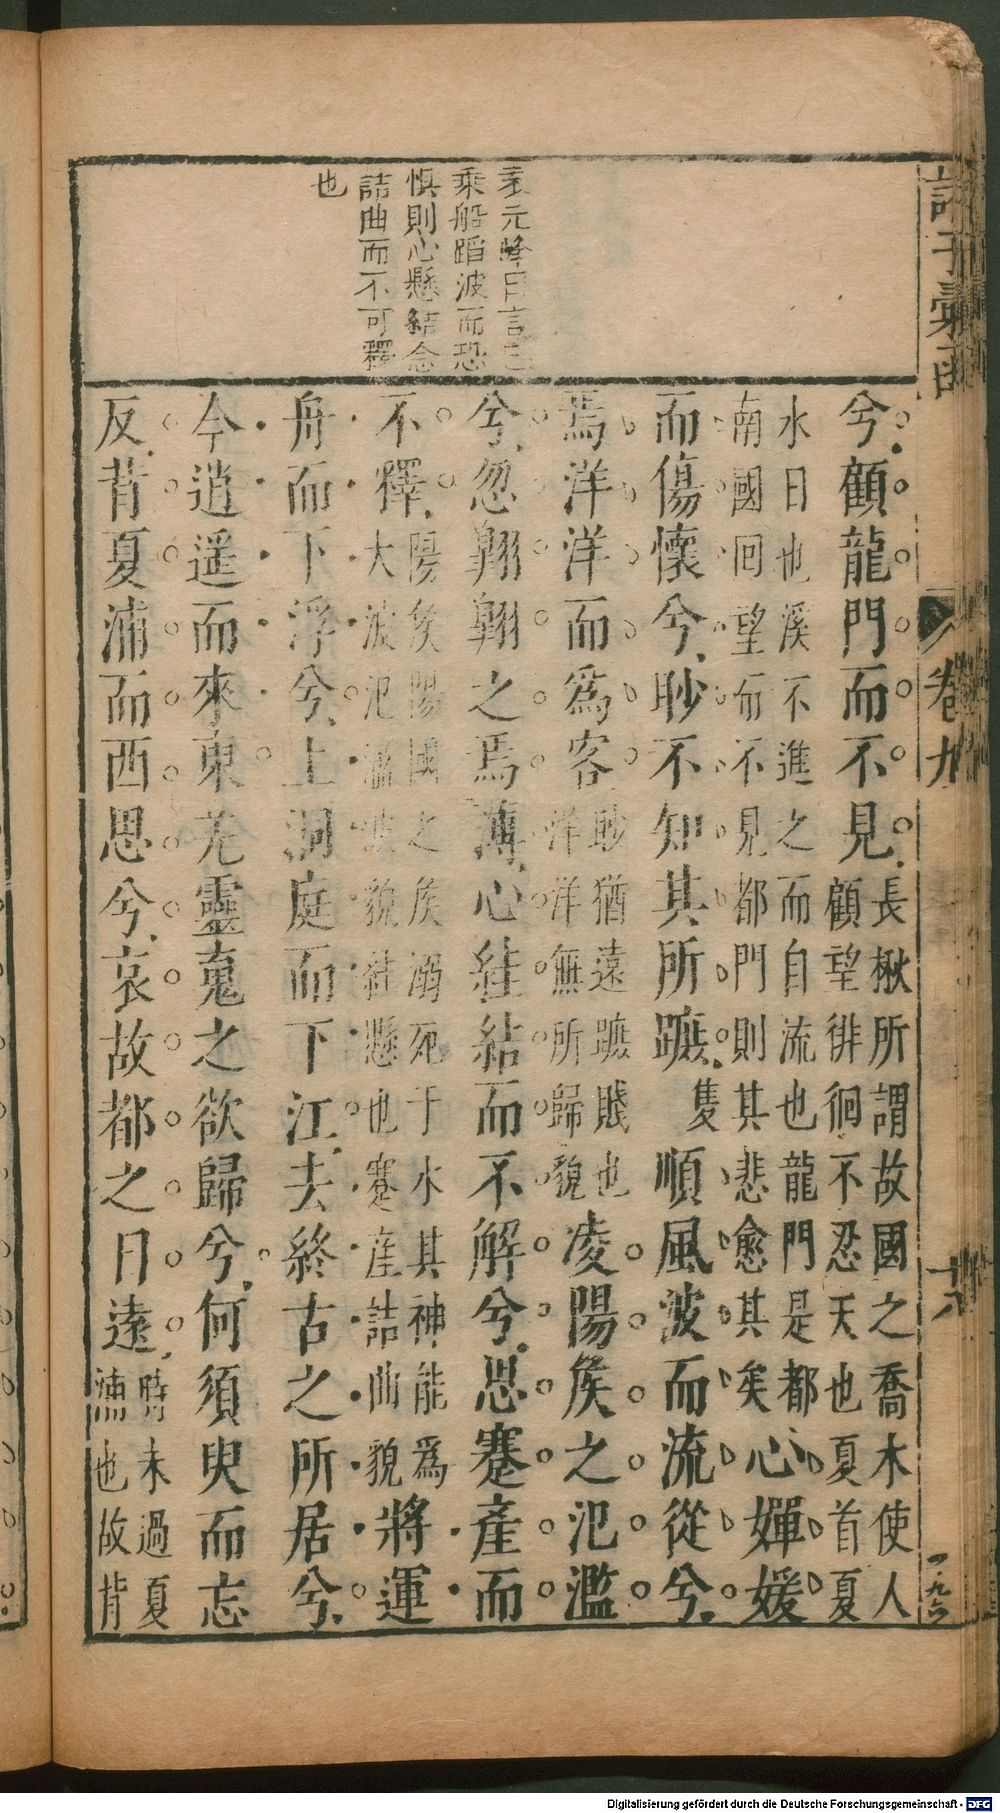 袁元峰曰言己
乘船蹈波而恐
惧則心懸結念
詰曲而不可釋
也
諸子彙函
卷九
十八
一九六
兮顧龍門而不見長楸所謂故國之喬木使人
顧望徘徊不忍夭也夏首夏
水日也溪不進之而自流也龍門是都心嬋媛
南國回望而不見都門則其悲愈其矣
而傷懷兮眇不知其所蹠隻順風波而流從兮
焉洋洋而為客眇猶遠蹠賤也凌陽矦之氾濫
洋洋無所歸貌
兮忽翺翺之焉薄心絓結而不解兮思蹇產而
不釋陽矦陽國之矦溺死于水其神能為將運
大波氾濫波貌絓懸也蹇產詰曲貌
舟而下浮兮上洞庭而下江去終古之所居兮
今逍遥而來東羌靈䰟之欲歸兮何須臾而忘
反背夏浦而西思兮哀故都之日遠時未過夏
浦也故背
Digitalisierung gefördert durch die Deutsche Forschungsgemeinschaft - DFG